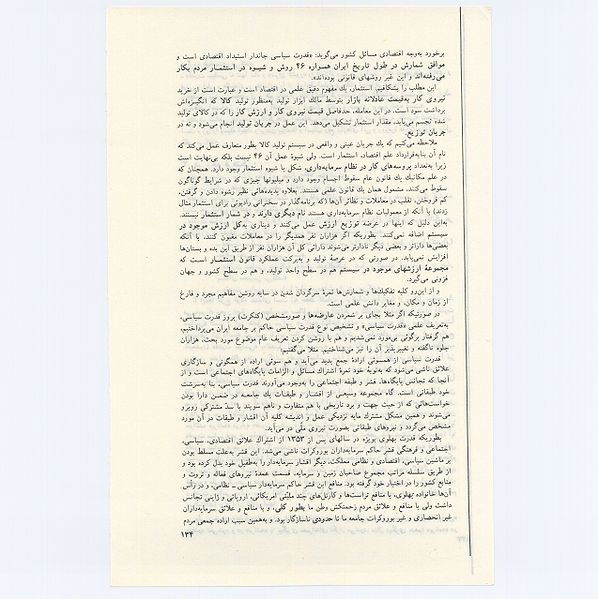 برخورد به‌وجه اقتصادی مسائل کشور می‌گوید: «قدرت سیاسی جاندار استبداد اقتصادی است و
موافق شمارش در طول تاریخ ایران همواره ۴۶ روش و شیوه در استثمار مردم بکار
می‌رفته‌اند و این غیر روشهای قانونی بوده‌اند».
این مطلب را بشکافیم. استثمار، یك مفهوم دقیق علمی در اقتصاد است و عبارت است از خرید
نیروی کار به‌قیمت عادلانه بازار بتوسط مالك ابزار تولید به‌منظور تولید کالا که انگیزه‌اش
برداشت سود است. در این معامله، حدفاصل قیمت نیروی کار و ارزش کار را که در کالای تولید
شده تجسم می‌یابد، مقدار استثمار تشکیل می‌دهد. این عمل در جریان تولید انجام می‌شود و نه در
جریان توزیع.
ملاحظه می‌کنیم که یك جریان عینی و واقعی در سیستم تولید کالا بطور متعارف عمل می‌کند که
نام آن بنابه‌قرارداد علم اقتصاد، استثمار است. ولی شیوهٔ عمل آن ۴۶ نیست بلکه بی‌نهایت است
زیرا به‌تعداد پروسه‌های کار در نظام سرمایه‌داری، شکل یا شیوه استثمار وجود دارد. همچنان که
در علم مکانیك یك قانون عام سقوط اجسام وجود دارد و میلیونها چیزی که در شرایط گوناگون
سقوط می‌کنند، مشمول همان یك قانون علمی هستند. بعلاوه پدیده‌هائی نظیر رشوه دادن و گرفتن،
کم فروختن، تقلب در معاملات و نظائر آن‌ها (که برنامه‌گذار در سخنرانی رادیوئی برای استثمار مثال
زدند) با آنکه از معمولیات نظام سرمایه‌داری هستند نام دیگری دارند و در شمار استثمار نیستند.
به‌این دلیل که اینها در عرضه توزیع ارزش عمل می‌کنند و دیناری به‌کل ارزش موجود در
سیستم اضافه نمی‌کنند. بطوریکه اگر هزاران نفر همدیگر را در معاملات مغبون کنند، با آنکه
بعضی‌ها داراتر و بعضی دیگر نادارتر می‌شوند دارائی کل آن هزاران نفر از طریق این بده و بستان‌ها
افزایش نمی‌یابد. در صورتی که در عرصهٔ تولید و به‌برکت عملکرد قانون استثمار است که
مجموعهٔ ارزشهای موجود در سیستم هم در سطح واحد تولید، و هم در سطح کشور و جهان
فزونی می‌گیرد.
و از این‌رو کلیه تفکیك‌ها و شمارش‌ها ثمرهٔ سرگردان شدن در سایه روشن مفاهیم مجرد و فارغ
از زمان و مکان، و مغایر دانش علمی است.
در صورتیکه اگر مثلا بجای بر شمردن عارضه‌ها و صورمشخص (کنکرت) بروز قدرت سیاسی،
به‌تعریف علمی «قدرت سیاسی» و تشخیص نوع قدرت سیاسی حاکم بر جامعه ایران می‌پرداختیم،
هم گرفتار پرگوئی بی‌مورد نمی‌شدیم و هم با روشن کردن تعریف عام موضوع مورد بحث، هزاران
جلوه ناگفته و تغییرپذیر آن را نیز می‌شناختیم. مثلا می‌گفتیم:
قدرت سیاسی از همسوئی ارادهٔ جمع پدید می‌آید و هم سوئی اراده از همگونی و سازگاری
علائق ناشی می‌شود که به‌نوبهٔ خود ثمرهٔ اشتراك مسائل و الزامات پایگاه‌های اجتماعی است و از
آنجا که تجانس پایگاه‌ها، قشر و طبقه اجتماعی را به‌وجود می‌آورند، قدرت سیاسی، بنا به‌سرشت
خود طبقاتی است. گاه مجموعه وسیعی از اقشار و طبقات یك جامعه در ضمن دارا بودن
خواست‌هائی که از حیث جهت و برد تاریخی با هم متفاوت و ناهم سویند با سدّ مشترکی روبرو
می‌شوند و همین مشکل مشترك مایه نزدیکی عمل و اندیشه کلیه آن اقشار و طبقات در آن مورد
مشخص می‌گردد و نیروهای طبقاتی بصورت نیروی ملّی در می‌آید.
بطوریکه قدرت پهلوی بویژه در سالهای پس از ۱۳۵۳ از اشتراك علائق اقتصادی، سیاسی،
اجتماعی و فرهنگی قشر حاکم سرمایه‌داران بوروکرات ناشی می‌شد. این قشر به‌علت مسلط بودن
بر ماشین سیاسی، اقتصادی و نظامی مملکت، دیگر اقشار سرمایه‌دار را به‌طفیل خود بدل کرده بود و
از طریق سلسله مراتب مجموع صاحبان زمین و سرمایه، قسمت عمدهٔ نیروهای فعاله و ثروت و
منابع کشور را در اختیار خود گرفته بود. منافع این قشر حاکم سرمایه‌دار سیاسی ـ نظامی، و در رأس
آن‌ها خانواده پهلوی، با منافع تراست‌ها و کارتل‌های چند ملیّتی امریکائی، اروپائی و ژاپنی تجانس
داشت ولی با منافع و علائق مردم زحمتکش وطن ما بطور کلی، و با منافع و علائق سرمایه‌داران
غیر انحصاری و غیر بوروکرات جامعه ما تا حدودی ناسازگار بود. و به‌همین سبب اراده جمعی مردم
۱۳۴